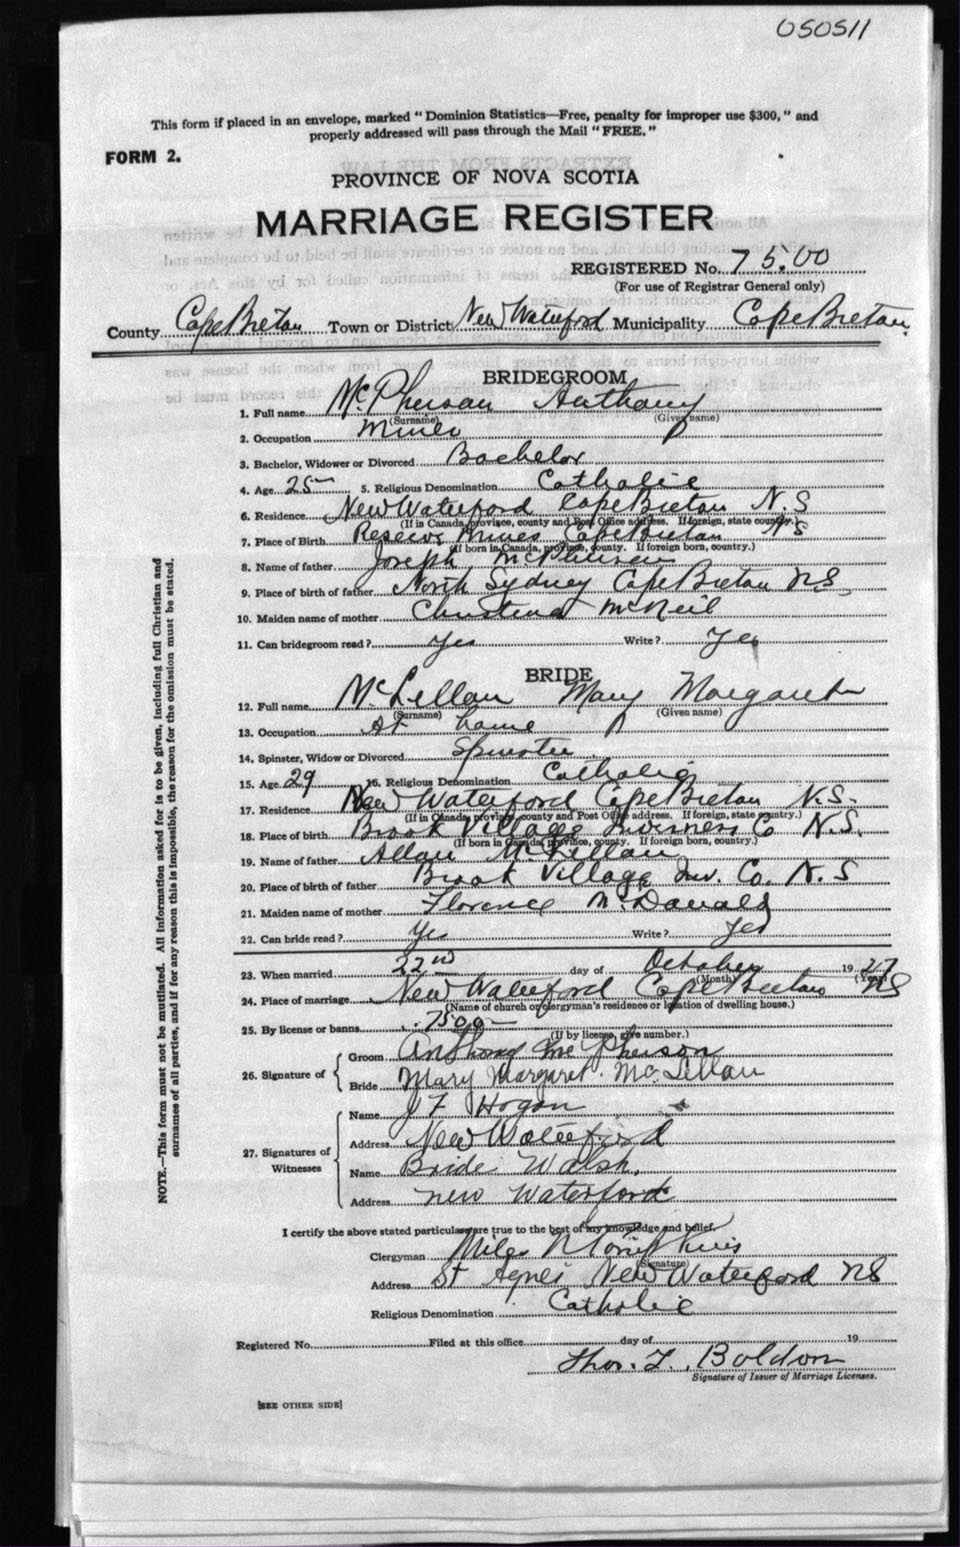 050511
This form if placed in an envelope, marked "Dominion Statistics—Free, penalty for improper use $300," and
properly addressed will pass through the Mail "FREE."
FORM 2.
PROVINCE OF NOVA SCOTIA
MARRIAGE REGISTER
REGISTERED No. 7500
(For use of Registrar General only)
County Cape Breton Town or District New Waterford Municipality Cape Breton
BRIDEGROOM
1. Full name McPherson Anthony
(Surname) (Given name)
2. Occupation Miner
3. Bachelor, Widower or Divorced Bachelor
4. Age 25 5. Religious Denomination Catholic
6. Residence New Waterford Cape Breton N.S
(If in Canada, province, county and Post Office address. If foreign, state country.)
7. Place of Birth Reserve Mines Cape Breton NS
(If born in Canada, province, county. If foreign born, country.)
8. Name of father Joseph McPherson
9. Place of birth of father North Sydney Cape Breton N.S.
10. Maiden name of mother Christina McNeil
11. Can bridegroom read? Yes Write? Yes
BRIDE
12. Full name McLellan Mary Margaret
(Surname) (Given name)
13. Occupation At home
14. Spinster, Widow or Divorced Spinster
15. Age 29 16. Religious Denomination Catholic
17. Residence New Waterford Cape Breton N.S.
(If in Canada, province, county and Post Office address. If foreign, state country.)
18. Place of birth Brook Village Inverness Co N.S.
(If born in Canada, province, county. If foreign born, country.)
19. Name of father Allan McLellan
20. Place of birth of father Brook Village Inv. Co. N.S
21. Maiden name of mother Florence McDonald
22. Can bride read? Yes Write? Yes
23. When married 22nd day of October 1927
(Month) (Year)
24. Place of marriage New Waterford Cape Breton NS
(Name of church or clergyman's residence or location of dwelling house.)
25. By license or banns 7500
(If by license, give number.)
26. Signature of
Groom Anthony McPherson
Bride Mary Margaret McLellan
27. Signatures of Witnesses
Name J F Hogan
Address New Waterford
Name Bride Walsh.
Address New Waterford
I certify the above stated particulars are true to the best of my knowledge and belief.
Clergyman Miles N Tompkins
(Signature)
Address St Agnes New Waterford NS
Religious Denomination Catholic
Registered No. Filed at this office day of 19
Thos. F. Boldon
Signature of Issuer of Marriage Licenses.
[SEE OTHER SIDE]
NOTE.—This form must not be mutilated. All information asked for is to be given, including full Christian and
surnames of all parties, and if for any reason this is impossible, the reason for the omission must be stated.